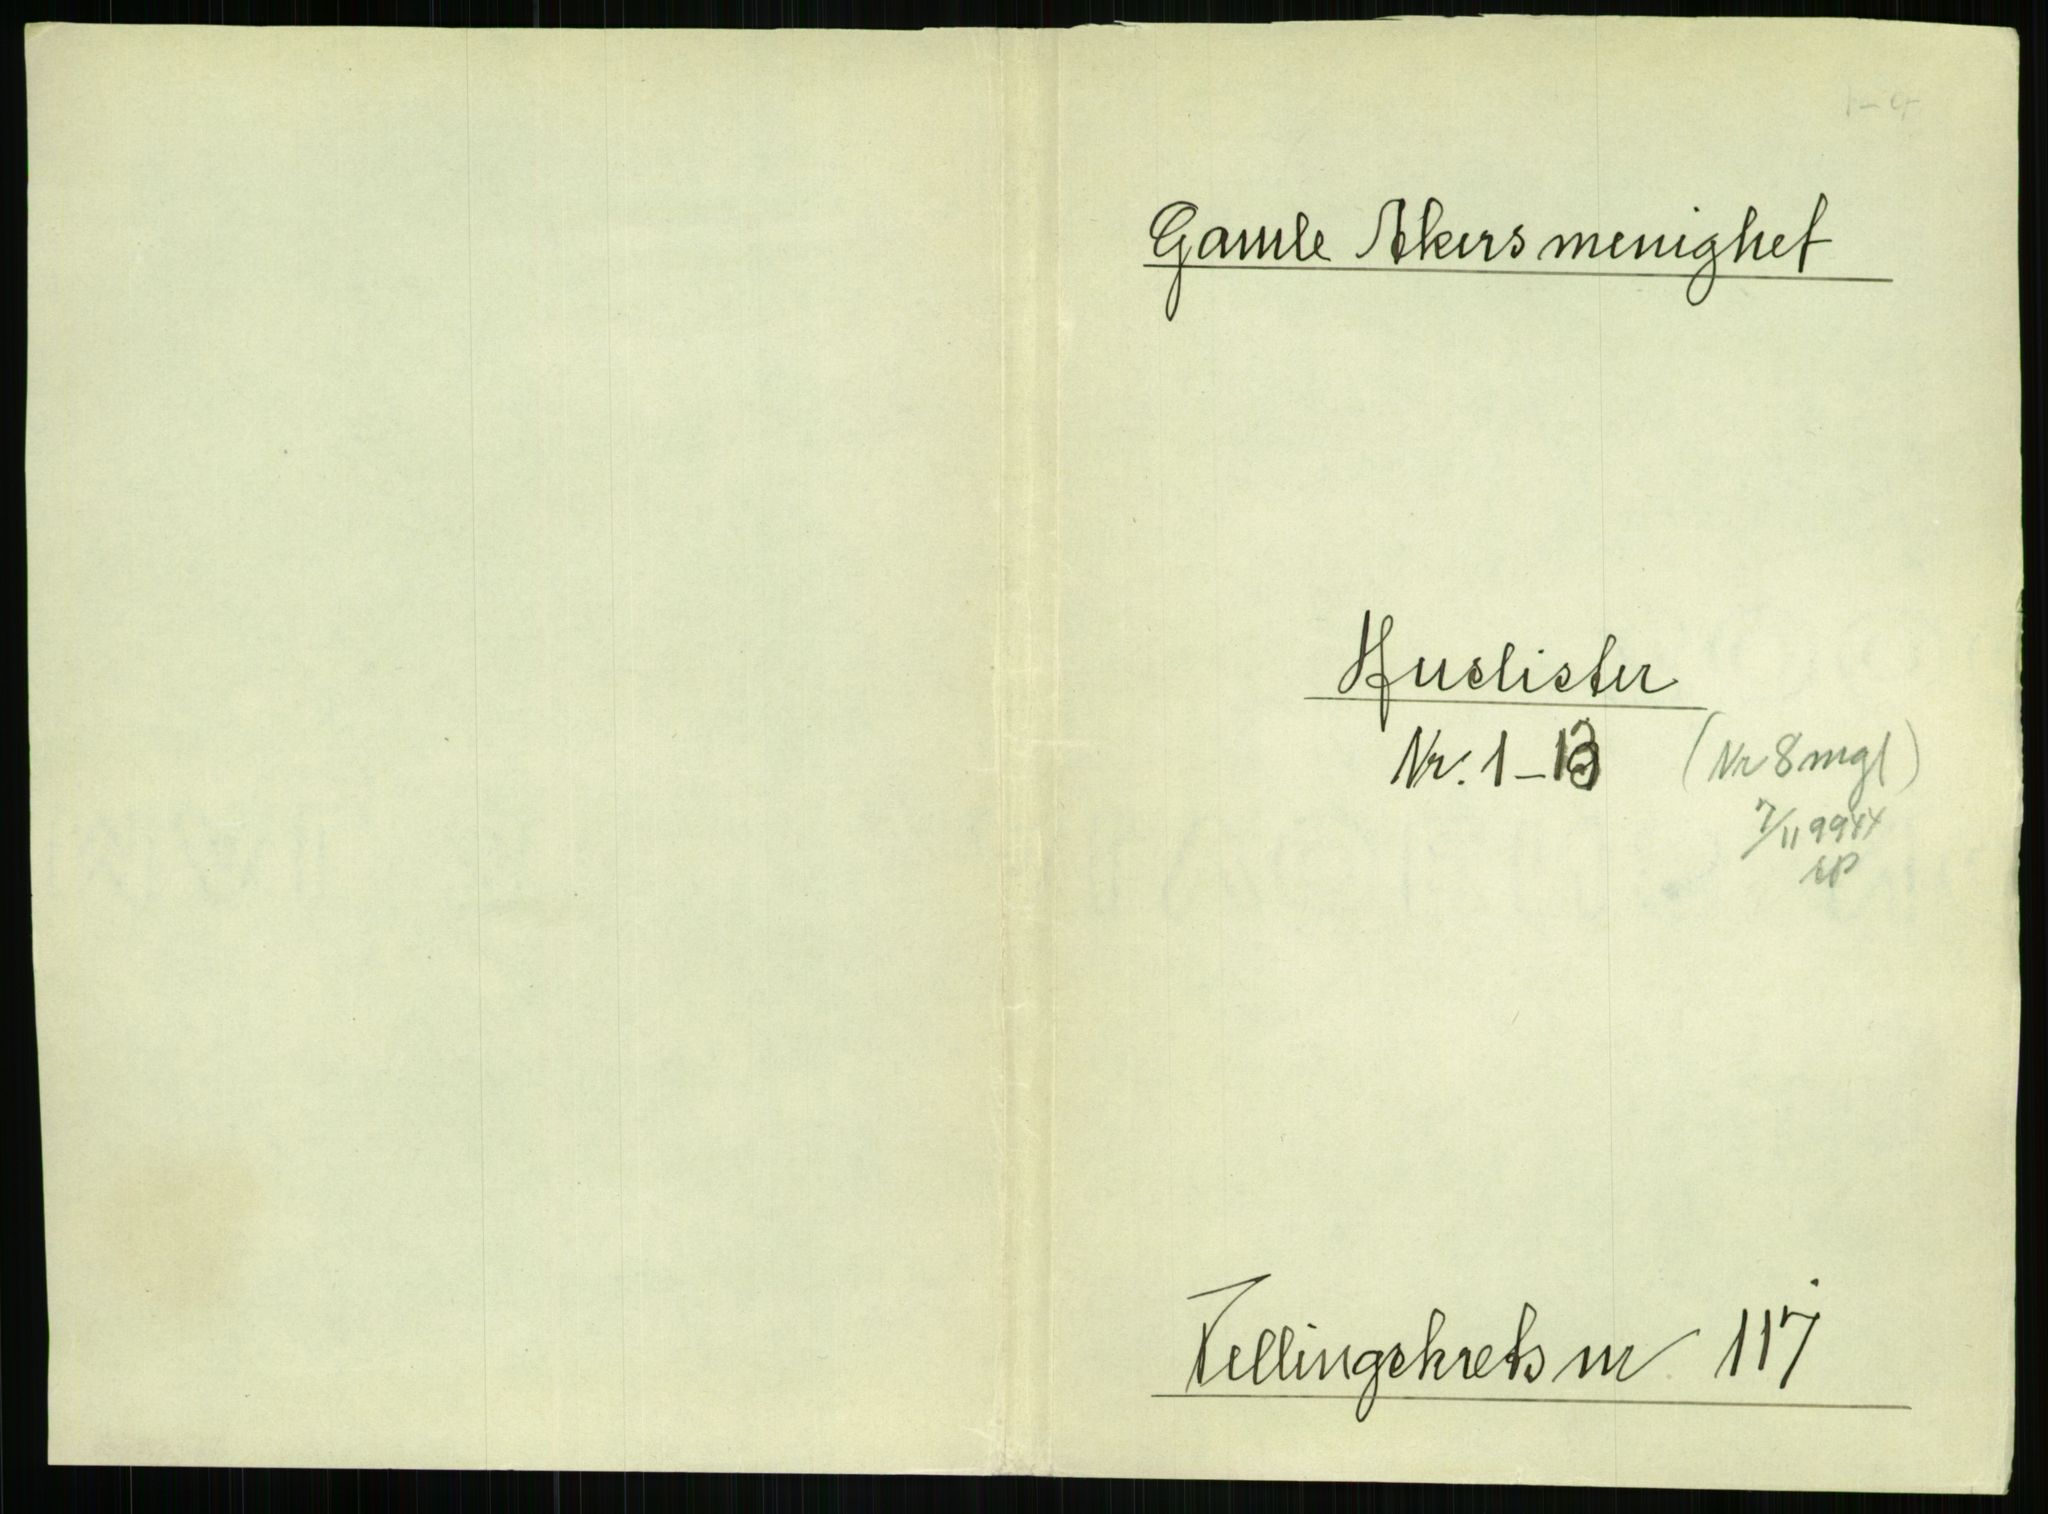 1-4
Gamle Akers menighet
Huslister
Nr. 1-13 (Nr 8 mgl)
7/11 9944
Tellingskrets nr 117